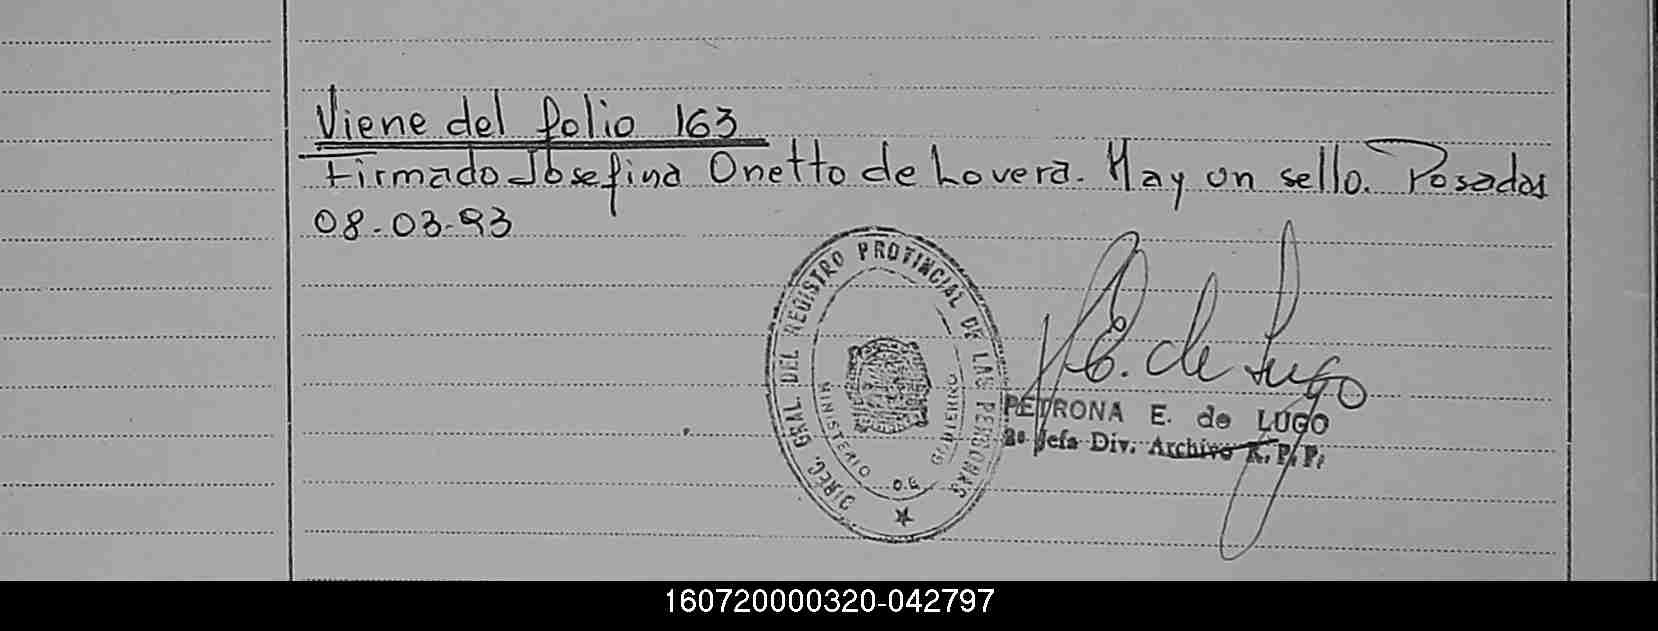 Viene del folio 163
Firmado Josefina Onetto de Lovera. Hay un sello. Posadas
08-03-93
DIREC. GRAL. DEL REGISTRO PROVINCIAL DE LAS PERSONAS
MINISTERIO DE GOBIERNO
P.E. de Lugo
PETRONA E. de LUGO
2ª Jefa Div. Archivo R. P. P.
160720000320-042797